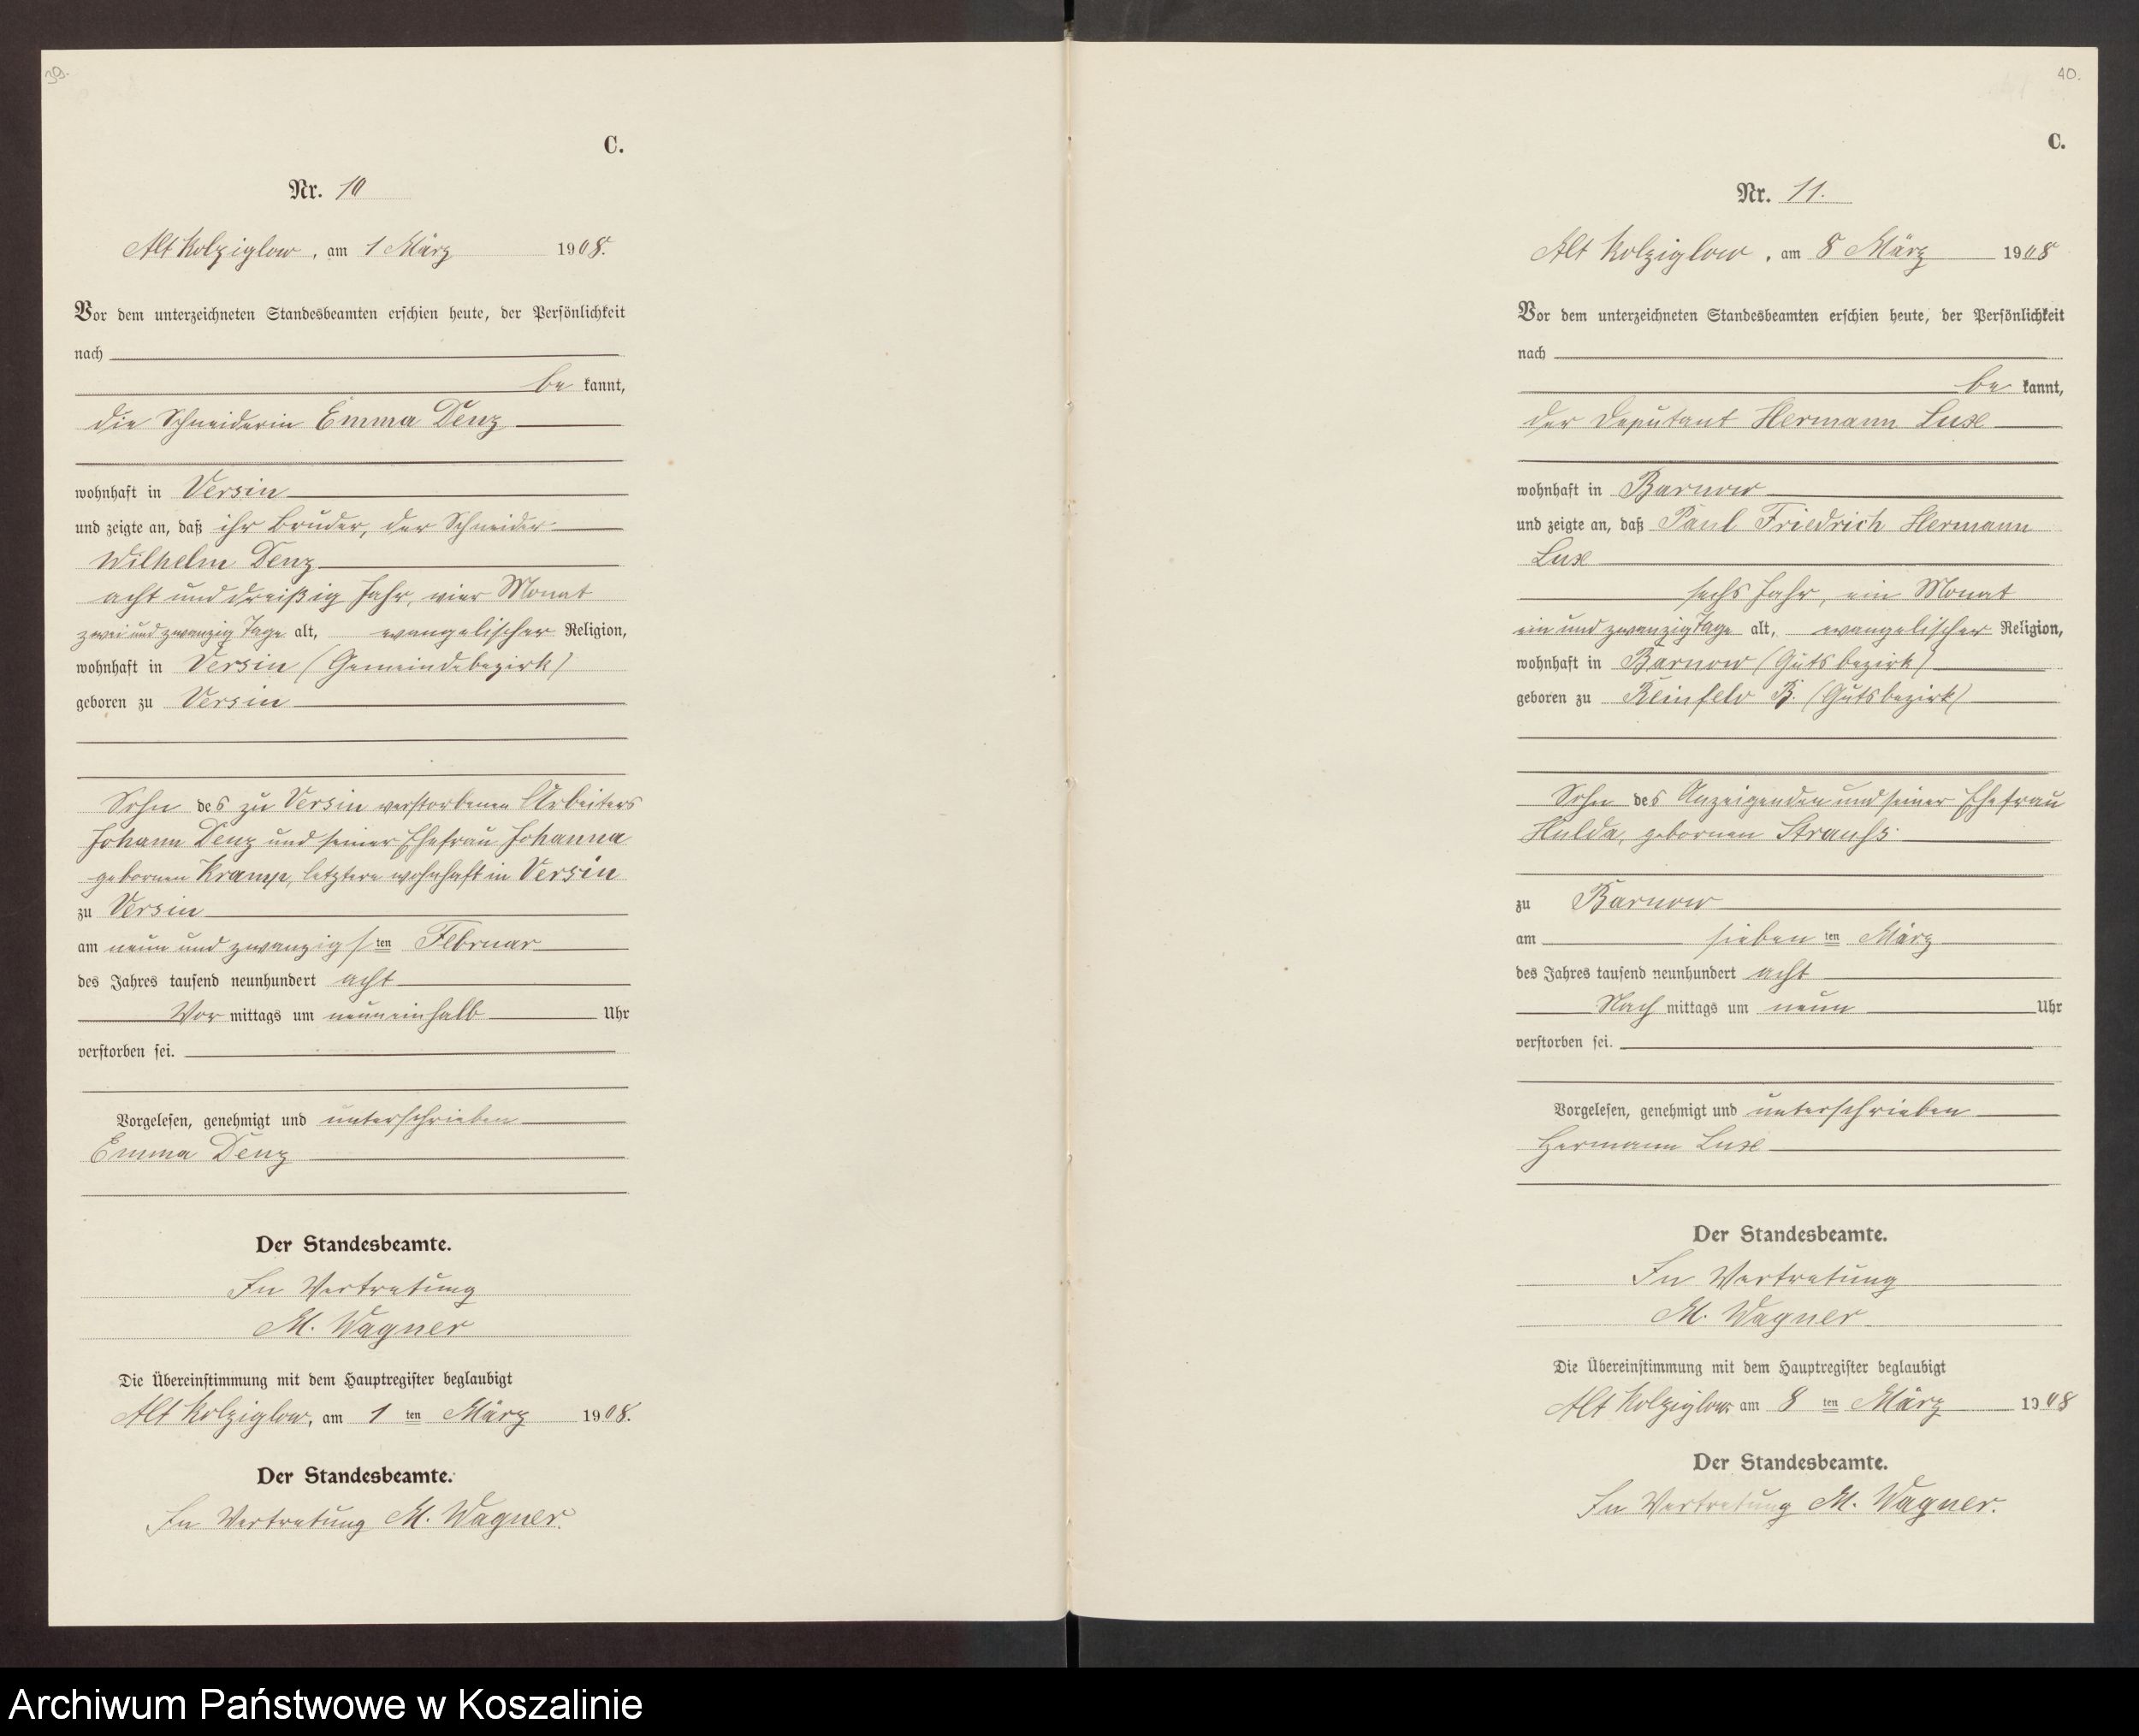 39.
C.
Nr. 10
Alt Kolziglow, am 1 März 1908.
Vor dem unterzeichneten Standesbeamten erschien heute, der Persönlichkeit
nach
be kannt,
die Schneiderin Emma Denz
wohnhaft in Versin
und zeigte an, daß ihr Bruder, der Schneider
Wilhelm Denz
acht und dreißig Jahr, vier Monat
zwei und zwanzig Tage alt, evangelischer Religion,
wohnhaft in Versin (Gemeindebezirk)
geboren zu Versin
Sohn des zu Versin verstorbenen Arbeiters
Johann Denz und seiner Ehefrau Johanna
gebornen Kramp, letztere wohnhaft in Versin
zu Versin
am neun und zwanzigsten Februar
des Jahres tausend neunhundert acht
Vor mittags um neuneinhalb Uhr
verstorben sei.
Vorgelesen, genehmigt und unterschrieben
Emma Denz
Der Standesbeamte.
In Vertretung
M. Wagner
Die Übereinstimmung mit dem Hauptregister beglaubigt
Alt Kolziglow, am 1 ten März 1908.
Der Standesbeamte.
In Vertretung M. Wagner.
40.
C.
Nr. 11.
Alt Kolziglow, am 8 März 1908
Vor dem unterzeichneten Standesbeamten erschien heute, der Persönlichkeit
nach
be kannt,
der Deputant Hermann Luxe
wohnhaft in Barnow
und zeigte an, daß Paul Friedrich Hermann
Luxe
sechs Jahr, ein Monat
ein und zwanzig Tage alt, evangelischer Religion,
wohnhaft in Barnow (Gutsbezirk)
geboren zu Reinfeld B. (Gutsbezirk)
Sohn des Anzeigenden und seiner Ehefrau
Hulda, gebornen Strauhs
zu Barnow
am sieben ten März
des Jahres tausend neunhundert acht
Nach mittags um neun Uhr
verstorben sei.
Vorgelesen, genehmigt und unterschrieben
Hermann Luxe
Der Standesbeamte.
In Vertretung
M. Wagner
Die Übereinstimmung mit dem Hauptregister beglaubigt
Alt Kolziglow am 8 ten März 1908
Der Standesbeamte.
In Vertretung M. Wagner.
Archiwum Państwowe w Koszalinie